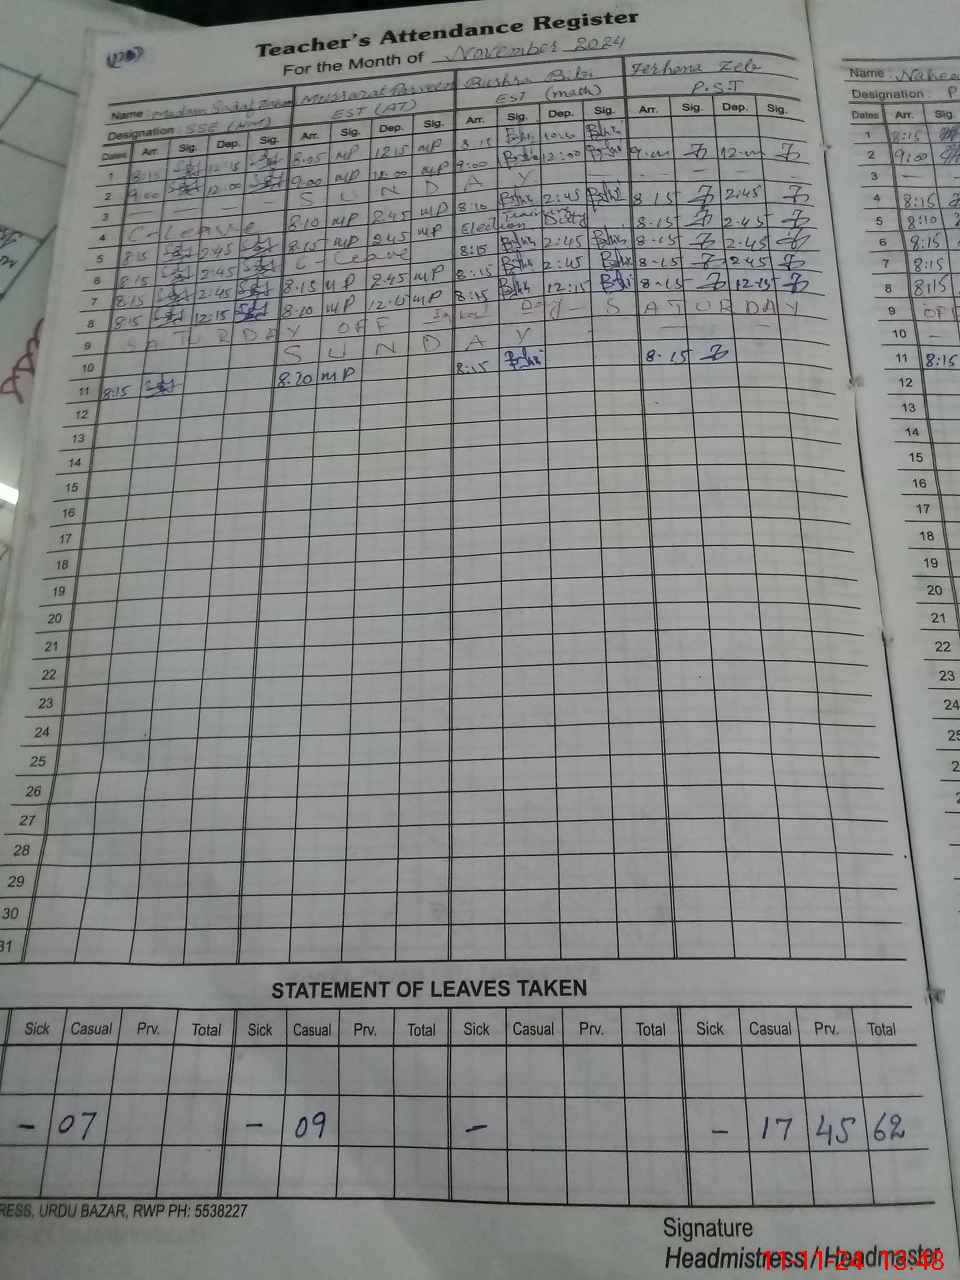 Teacher's Attendance Register
For the Month of November 2024
Name: Madam Musarrat Parveen Bushra Bibi Ferhana Zeb Name: Naheed
Designation: SSE EST (AT) EST (math) P.S.T Designation: P
Dates Arr. Sig. Dep. Sig. Arr. Sig. Dep. Sig. Arr. Sig. Dep. Sig. Arr. Sig. Dep. Sig. Dates Arr. Sig.
1 8:15 12:15 8:05 MP 12:15 MP 8:15 1 8:15
2 9:00 12:00 9:00 MP 12:00 MP 9:00 12:00 9:00 12:00 2 9:00
3 — — — — S U N D A Y — — — — 3 — —
4 C-Leave 8:10 MP 2:45 MP 8:10 2:45 8-15 2:45 4 8:15
5 8:15 2:45 8:15 MP 2:45 MP Election Training Duty 8-15 2-45 5 8:10
6 8:15 2:45 C-Leave 8:15 2:45 8-15 2-45 6 8:15
7 8:15 2:45 8:15 MP 2:45 MP 8:15 2:45 8-15 2:45 7 8:15
8 8:15 12:15 8:10 MP 12:15 MP 8:15 12:15 8-15 12-15 8 8:15
9 SATURDAY OFF Day - SATURDAY 9 OFF
10 S U N D A Y - — — 10 —
11 8:15 8:20 MP 8:15 8-15 11 8:15
12 12
13 13
14 14
15 15
16 16
17 17
18 18
19 19
20 20
21 21
22 22
23 23
24 24
25 25
26 2
27
28
29
30
31
STATEMENT OF LEAVES TAKEN
Sick Casual Prv. Total Sick Casual Prv. Total Sick Casual Prv. Total Sick Casual Prv. Total
- 07 - 09 - - 17 45 62
RESS, URDU BAZAR, RWP PH: 5538227
Signature
Headmistress / Headmaster
11-11-24 13:48